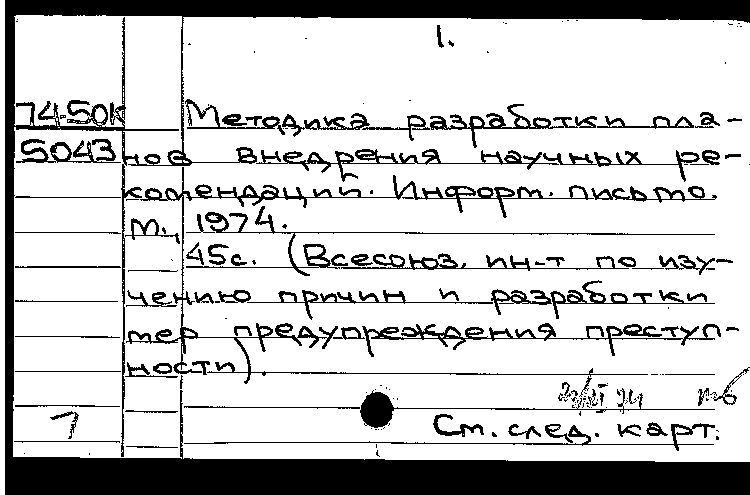 1.
74-50к Методика разработки пла-
5043 нов внедрения научных ре-
комендаций. Информ. письмо.
М., 1974.
45с. (Всесоюз. ин-т по изу-
чению причин и разработки
мер предупреждения преступ-
ности).
См. след. карт.